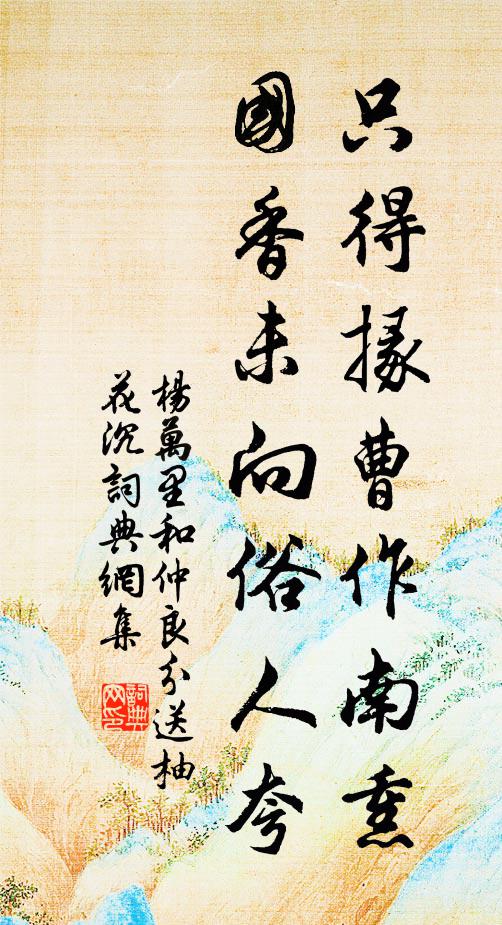 只得掾曹作南熏
國香未向俗人夸
楊萬里和仲良分送柚
花沉詞典網集
詞典網印